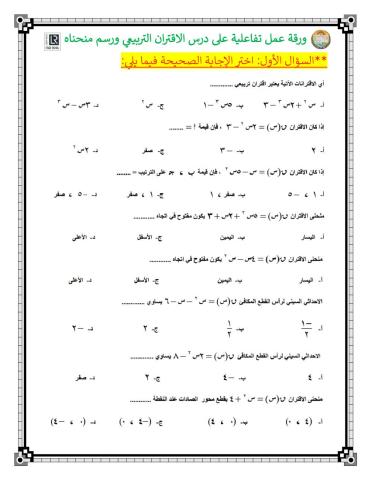 ورقة عمل تفاعلية على درس الاقتران التربيعي ورسم منحناه
**السؤال الأول: اختر الإجابة الصحيحة فيما يلي:
أي الاقترانات الآتية يعتبر اقتران تربيعي ..............
أ- س٢ + ٢س٣ − ٣ ب- ٥س٣ − ١ ج- س٢ د- ٣س − س٣
إذا كان الاقتران ن(س) = ٢س٢ − ٣ ، فان قيمة أ = ........
أ- ٢ ب- −٣ ج- صفر د- ٢س٢
إذا كان الاقتران ن(س) = س − ٥س٢ ، فان قيمة ب ، جـ على الترتيب = ........
أ- ١ ، −٥ ب- صفر ، ١ ج- ١ ، صفر د- −٥ ، صفر
منحنى الاقتران ن(س) = ٥س٢ + ٢س + ٣ يكون مفتوح في اتجاه ............
أ- اليسار ب- اليمين ج- الأسفل د- الأعلى
منحنى الاقتران ن(س) = ٤س − س٢ يكون مفتوح في اتجاه ............
أ- اليسار ب- اليمين ج- الأسفل د- الأعلى
الاحداثي السيني لرأس القطع المكافئ ن(س) = س٢ − س − ٦ يساوي ............
أ- −١/٢ ب- ١/٢ ج- ٢ د- −٢
الاحداثي السيني لرأس القطع المكافئ ن(س) = ٢س٢ − ٨ يساوي ............
أ- ٤ ب- −٤ ج- ٢ د- صفر
منحنى الاقتران ن(س) = س٢ + ٤ يقطع محور الصادات عند النقطة ............
أ- (٤ ، ٠) ب- (٠ ، ٤) ج- (−٤ ، ٠) د- (٠ ، −٤)